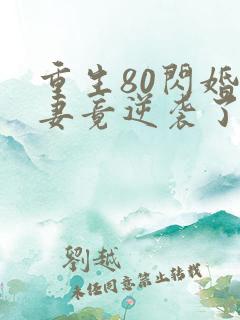 重生80閃婚
妻竟逆袭了
劉越
未经同意禁止转载